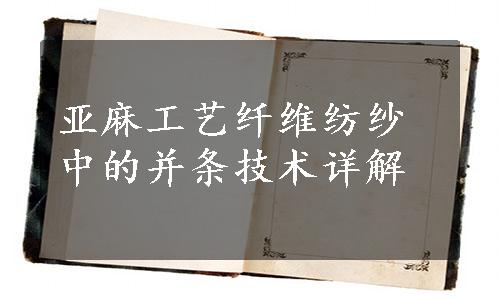 亚麻工艺纤维纺纱
中的并条技术详解